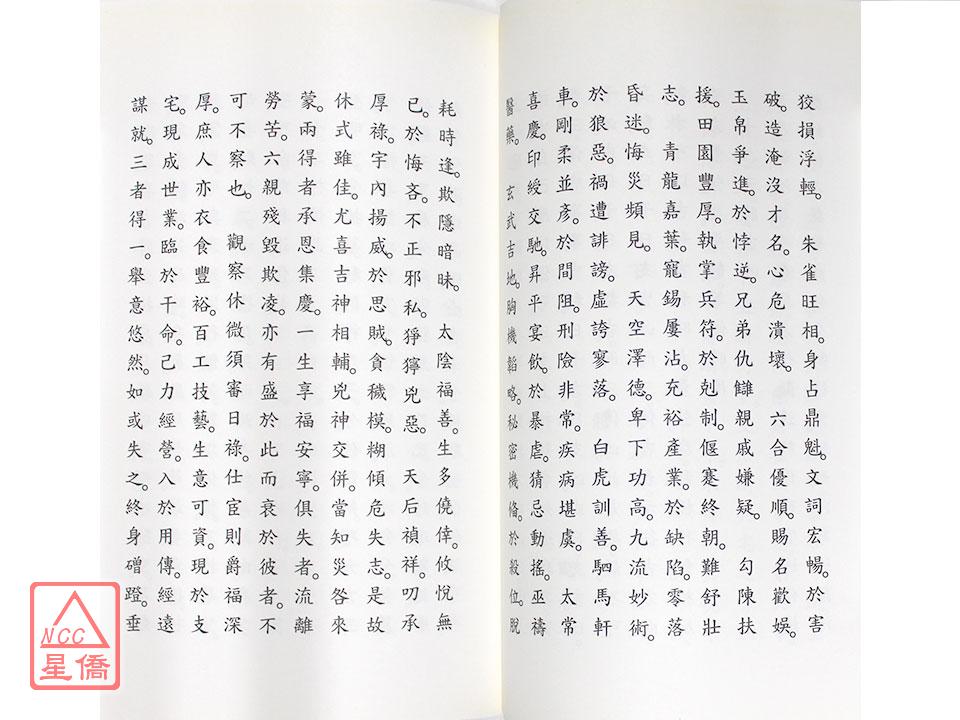 狡損浮輕。　朱雀旺相。身占鼎魁。文詞宏暢。於害
破。造淹沒才名。心危潰壞。　六合優順。賜名歡娛。
玉帛爭進。於悖逆。兄弟仇讎親戚嫌疑。　勾陳扶
援。田園豐厚。執掌兵符。於剋制。偃蹇終朝。難舒壯
志。　青龍嘉葉。寵錫屢沾。充裕產業。於缺陷。零落
昏迷。悔災頻見。　天空澤德。卑下功高。九流妙術。
於狼惡。禍遭誹謗。虛誇寥落。　白虎訓善。駟馬軒
車。剛柔並彥。於間阻。刑險非常。疾病堪虞。　太常
喜慶。印綬交馳。昇平宴飲。於暴虐。猜忌動搖。巫禱
醫藥。　玄武吉地。胸機韜略。秘密機脩。於殺位。脫
耗時逢。欺隱暗昧。　太陰福善。生多僥倖。攸悅無
已。於悔吝。不正邪私。猙獰兇惡。　天后禎祥。叨承
厚祿。宇內揚威。於思賊。貪穢模糊。傾危失志。是故
休式雖佳。尤喜吉神相輔。兇神交併。當知災咎來
蒙。兩得者承恩集慶。一生享福安寧。俱失者。流離
勞苦。六親殘毀欺凌。亦有盛於此而衰於彼者。不
可不察也。　觀察休微須審日祿。仕宦則爵福深
厚。庶人亦衣食豐裕。百工技藝。生意可資。現於支
宅。現成世業。臨於干命。己力經營。入於用傳。經遠
謀就。三者得一。舉意悠然。如或失之。終身磳蹬。垂
NCC
星僑